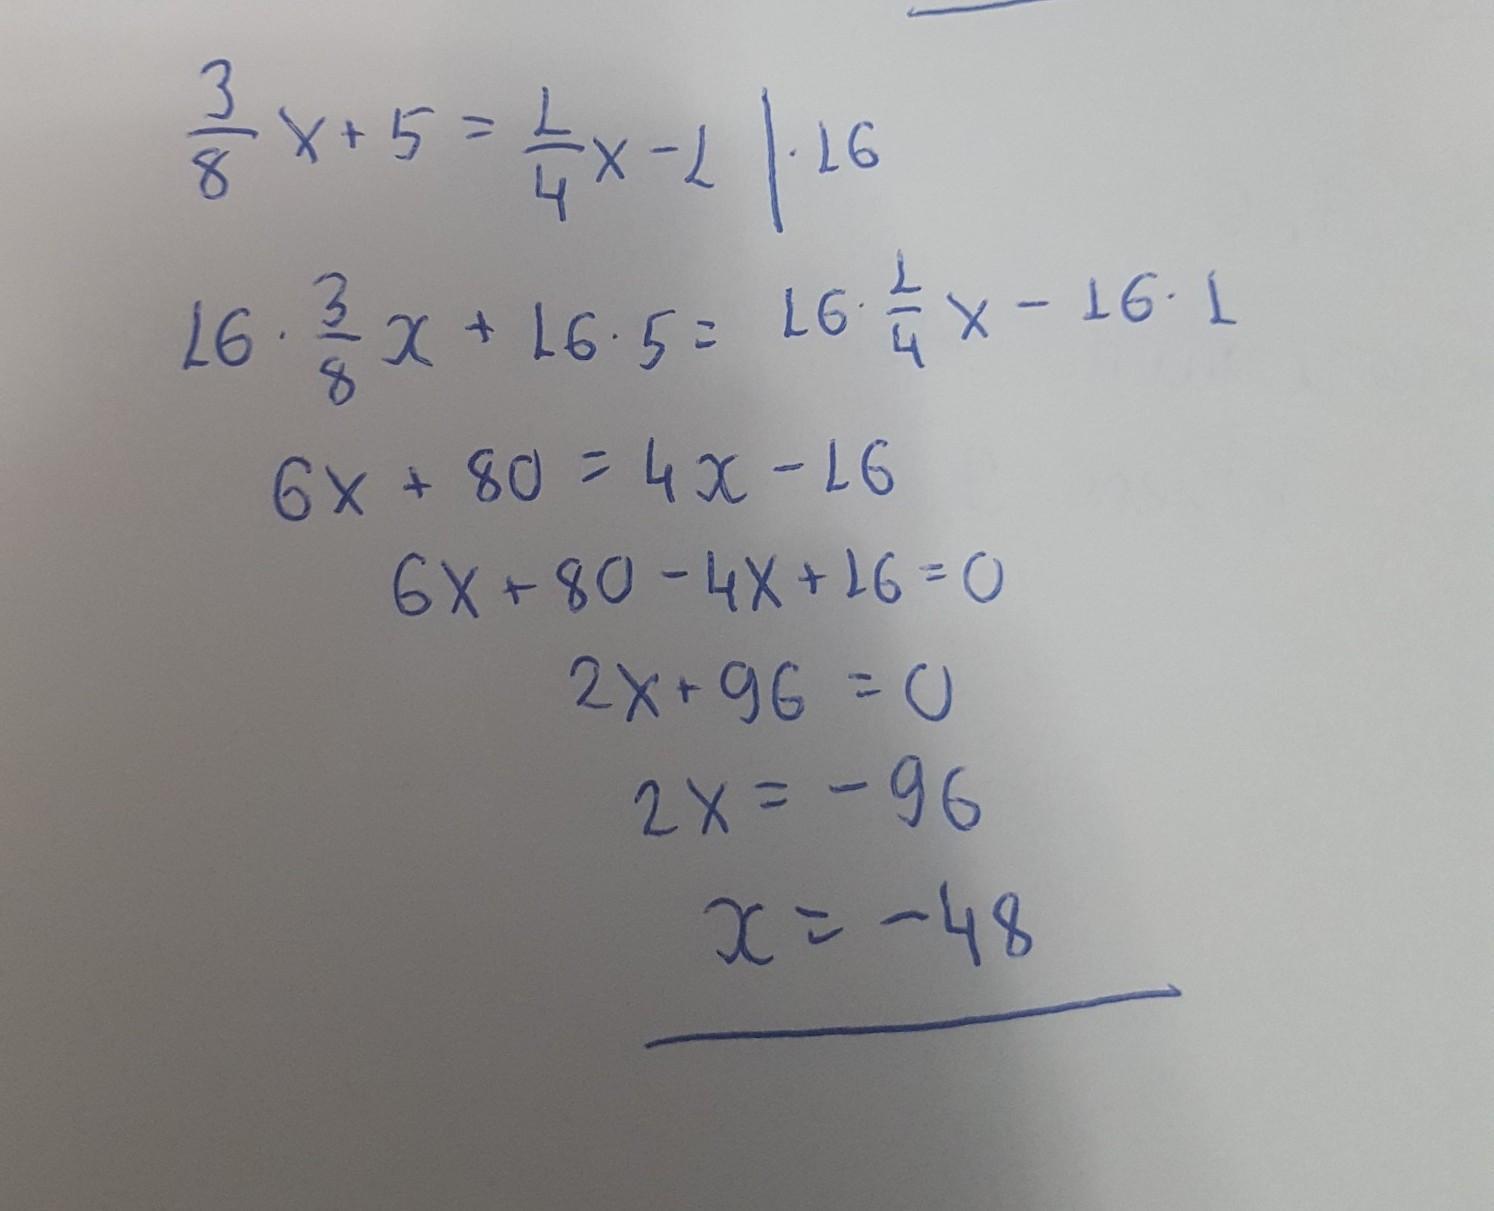 3/8 x + 5 = 1/4 x - 1 | · 16
16 · 3/8 x + 16 · 5 = 16 · 1/4 x - 16 · 1
6x + 80 = 4x - 16
6x + 80 - 4x + 16 = 0
2x + 96 = 0
2x = - 96
x = - 48